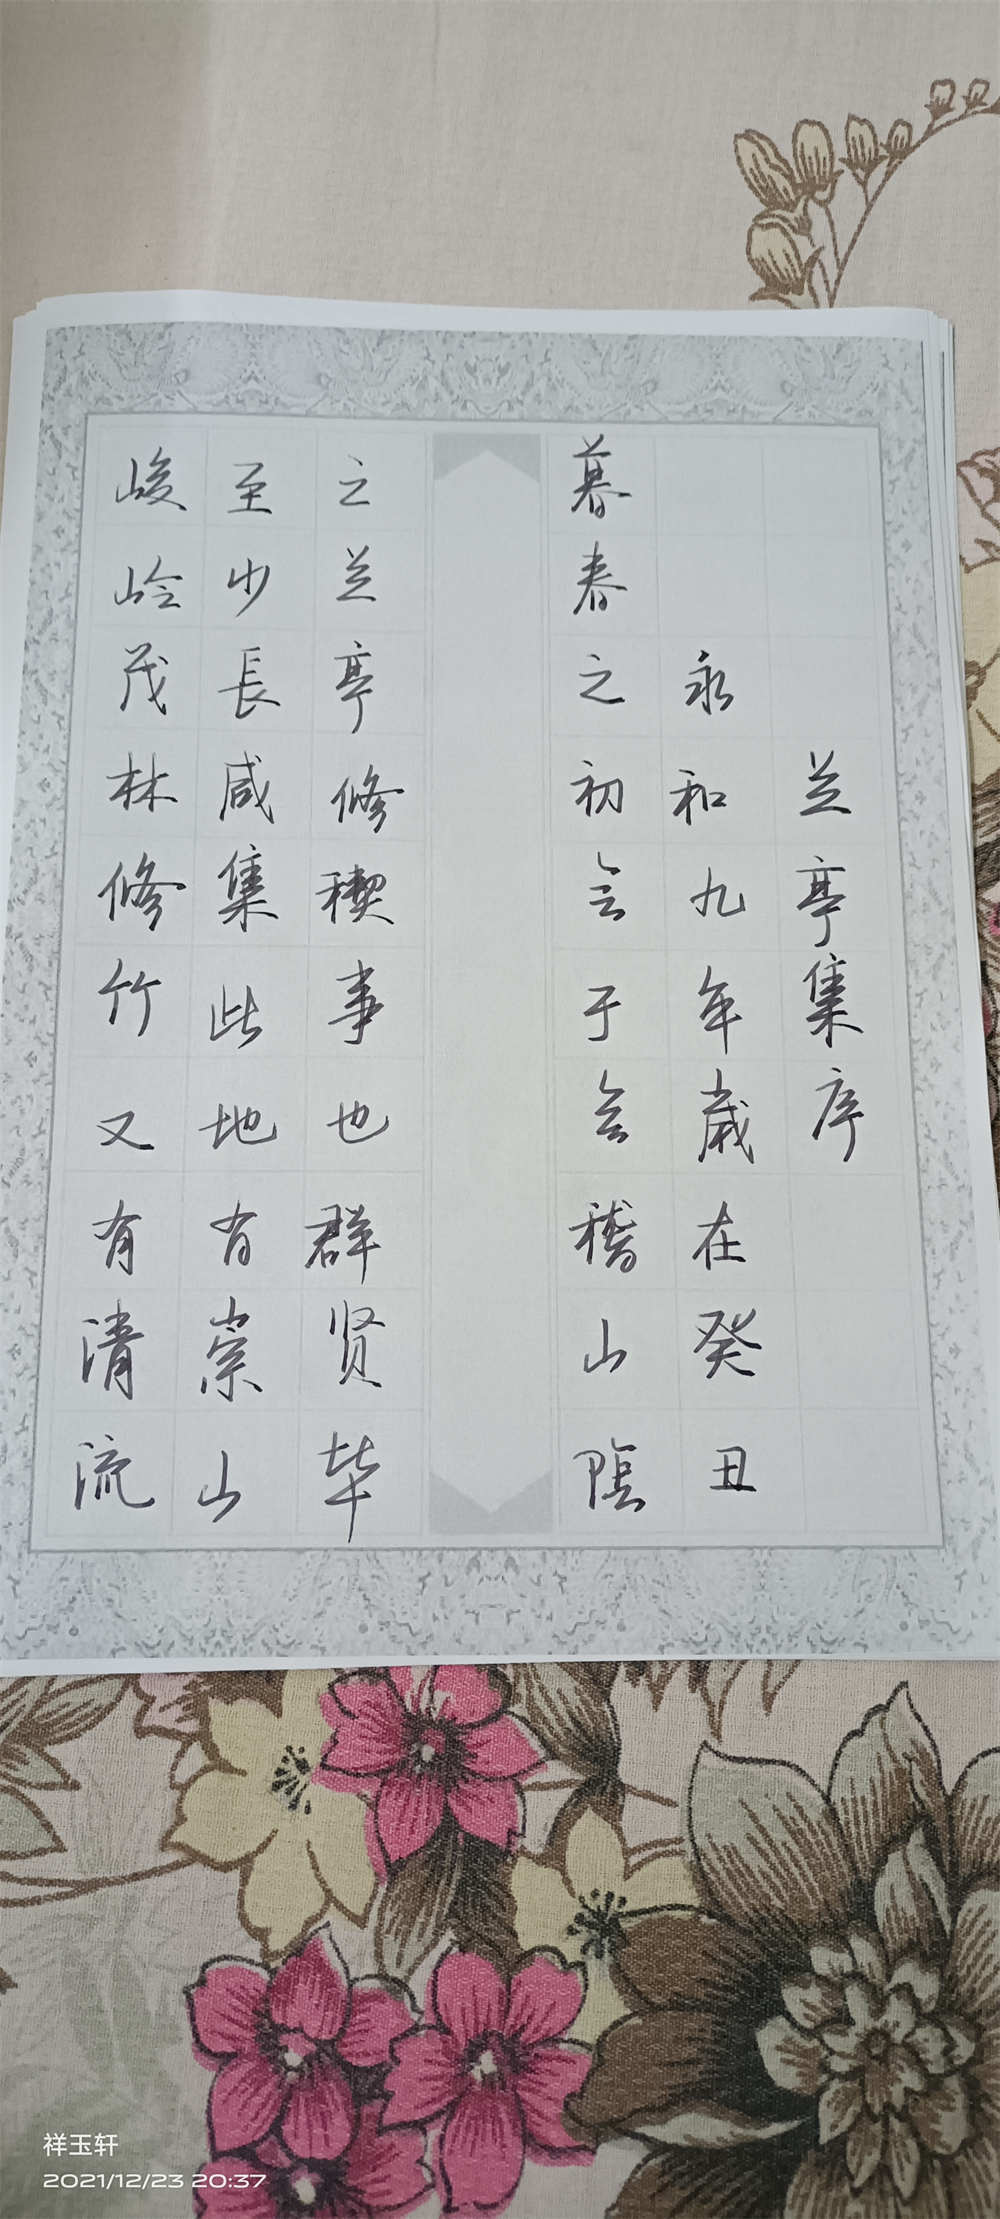 兰亭集序
永和九年岁在癸丑
暮春之初会于会稽山陰
之兰亭修稧事也群贤毕
至少長咸集此地有崇山
峻岭茂林修竹又有清流
祥玉轩
2021/12/23 20:37